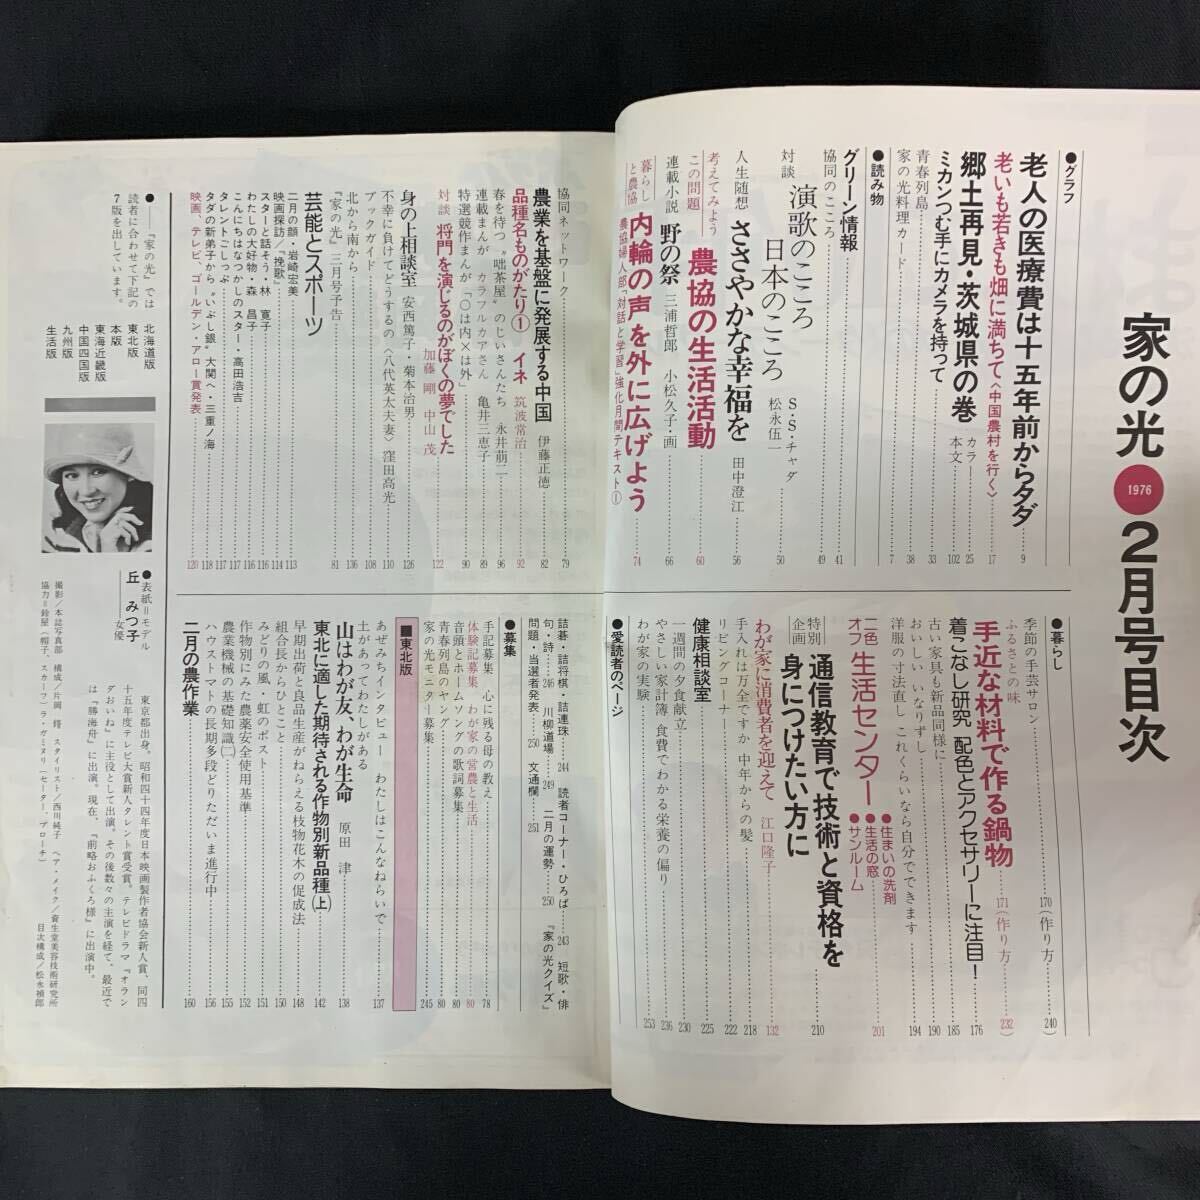 家の光 1976 2月号目次
●グラフ
老人の医療費は十五年前からタダ……9
老いも若きも畑に満ちて〈中国農村を行く〉……17
郷土再見・茨城県の巻 カラー……25
本文……102
ミカンつむ手にカメラを持って……33
青春列島……38
家の光料理カード……7
●読み物
グリーン情報……41
協同のこころ……49
対談 演歌のこころ 日本のこころ S・S・チャダ 松永伍一……50
人生随想 ささやかな幸福を 田中澄江……56
考えてみようこの問題 農協の生活活動……60
連載小説 野の祭 三浦哲郎 小松久子・画……66
暮らしと農協 内輪の声を外に広げよう……74
農協婦人部「対話と学習」強化月間テキスト①
協同ネットワーク……79
農業を基盤に発展する中国 伊藤正徳……82
品種名ものがたり① イネ 筑波常治……92
春を待つ〝咄茶屋〟のじいさんたち 永井萠二……96
連載まんが カラフルカアさん 亀井三恵子……89
特選競作まんが「〇は内×は外」……90
対談 将門を演じるのがぼくの夢でした 加藤剛 中山茂……122
身の上相談室 安西篤子・菊本治男……126
不幸に負けてどうするの〈八代英太夫妻〉窪田高光……110
ブックガイド……108
北から南から……136
『家の光』三月号予告……81
芸能とスポーツ
二月の顔・岩崎宏美……113
映画探訪／「挽歌」……114
スターと話そう・林 寛子……116
わたしの大好物・森 昌子……116
こんにちはなつかしのスター・高田浩吉……117
タレントごしっぷ……117
タタの新弟子から〝いぶし銀〟大関へ・三重ノ海……118
映画、テレビ、ゴールデン・アロー賞発表……120
●――『家の光』では読者に合わせて下記の7版を出しています。
北海道版
東北版
本版
東海近畿版
中国四国版
九州版
生活版
●暮らし
季節の手芸サロン……170（作り方……240）
ふるさとの味
手近な材料で作る鍋物……171（作り方……232）
着こなし研究 配色とアクセサリーに注目！……176
古い家具も新品同様に……185
おいしい いなりずし……190
洋服の寸法直し これくらいなら自分でできます……194
二色オフ 生活センター ●住まいの洗剤 ●生活の窓 ●サンルーム……201
特別企画 通信教育で技術と資格を身につけたい方に……210
わが家に消費者を迎えて 江口隆子……132
手入れは万全ですか 中年からの髪……218
リビングコーナー……222
健康相談室……225
一週間の夕食献立……230
やさしい家計簿 食費でわかる栄養の偏り……236
わが家の実験……253
●愛読者のページ
詰碁・詰将棋・詰連珠……244 読者コーナー・ひろば……243 短歌・俳句・詩……246 川柳道場……249 二月の運勢……250 『家の光クイズ』問題・当選者発表……250 文通欄……251
●募集
手記募集 心に残る母の教え……78
体験記募集 わが家の営農と生活……80
音頭とホームソングの歌詞募集……80
青春列島のヤング……80
家の光モニター募集……245
■東北版
あぜみちインタビュー わたしはこんなねらいで……137
土があってわたしがある
山はわが友、わが生命 原田 津……138
東北に適した期待される作物別新品種（上）……142
早期出荷と良品生産がねらえる枝物花木の促成法……148
組合長からひとこと……150
みどりの風・虹のポスト……151
作物別にみた農薬安全使用基準……152
農業機械の基礎知識㈡……155
ハウストマトの長期多段どりただいま進行中……156
二月の農作業……160
●表紙＝モデル
丘 みつ子 女優
東京都出身。昭和四十四年度日本映画製作者協会新人賞、同四十五年度テレビ大賞新人タレント賞受賞。テレビドラマ『オランダおいね』に主役として出演。その後数々の主演を経て、最近では『勝海舟』に出演。現在、『前略おふくろ様』に出演中。
撮影／本誌写真部 構成／片岡 脩 スタイリスト／西川純子 ヘア・メイク／資生堂美容技術研究所
協力＝鈴屋（帽子、スカーフ）ラ・ガミヌリ（セーター、ブローチ） 目次構成／松永禎郎